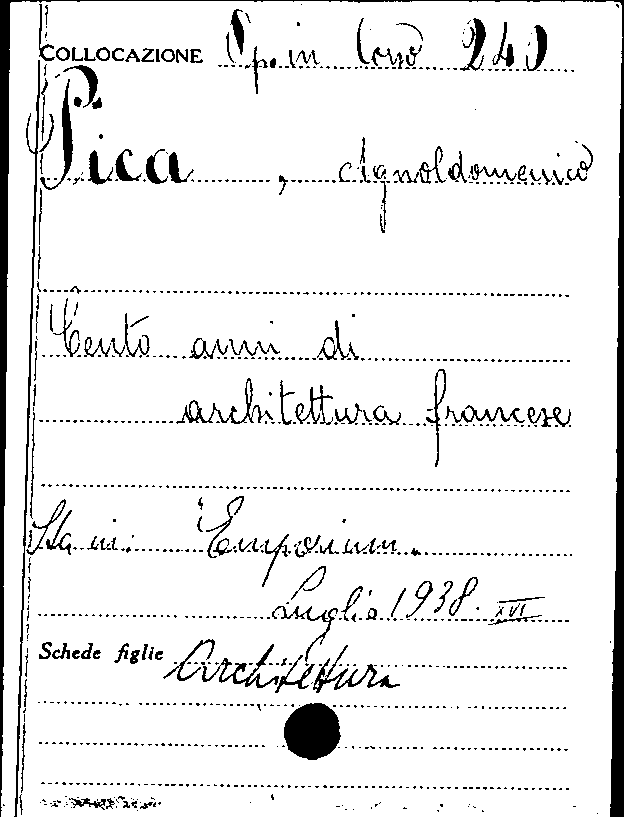 COLLOCAZIONE Sp. in Cons 240
Pica, Agnoldomenico
Cento anni di
architettura francese
Sta in: Emporium.
Luglio 1938. XVI
Schede figlie Architettura